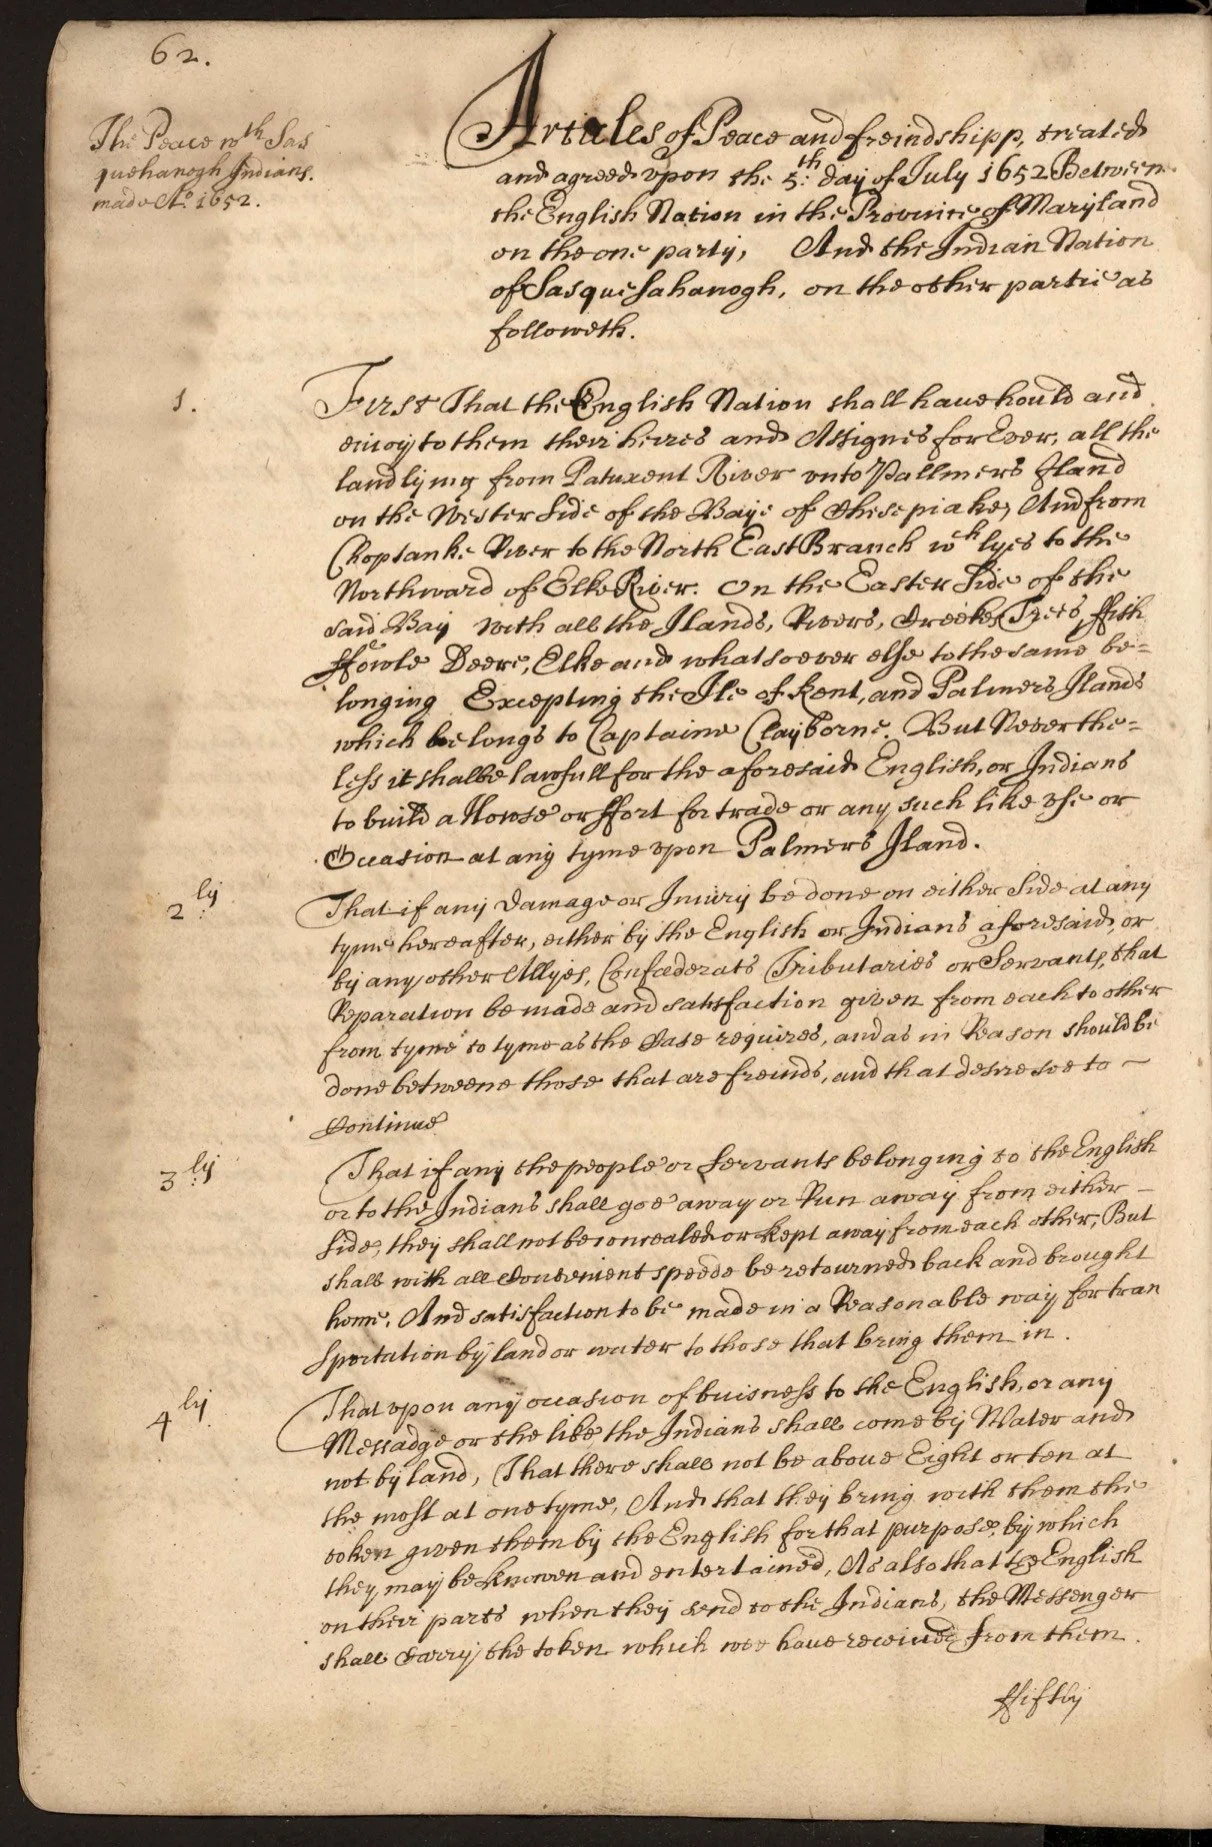 62.
The Peace wth Sas
quehanogh Indians.
made Ao. 1652.
Articles of Peace and freindshipp, treated
and agreed vpon the 5th: day of July 1652 Betweene
the English Nation in the Province of Maryland
on the one party, And the Indian Nation
of Sasquesahanogh, on the other partie as
followeth.
1.
First That the English Nation shall haue hould and
enioy to them their heires and Assignes for Ever, all the
land lying from Patuxent River vnto Pallmers Iland
on the Wester Side of the Baye of Chesepiake, And from
Choptanke River to the North East Branch wch lyes to the
Northward of Elke River. On the Easter Side of the
said Bay with all the Ilands, Rivers, Creekes, Trees, ffish
ffowle Deere, Elke and whatsoever else to the same be=
longing Excepting the Ile of Kent, and Palmers Ilands
which belongs to Captaine Clayborne. But Neverthe=
less it shalbe lawfull for the aforesaid English, or Indians
to build a Howse or ffort for trade or any such like vse or
Occasion at any tyme vpon Palmers Iland.
2ly.
That if any Damage or Iniury be done on either Side at any
tyme hereafter, either by the English or Indians aforesaid, or
by any other Allyes, Confœderats Tributaries or Servants, that
Reparation be made and satisfaction given from each to other
from tyme to tyme as the Case requires, and as in Reason should be
done betweene those that are freinds, and that desire soe to
Continue
3ly.
That if any the people or servants belonging to the English
or to the Indians shall goe away or Run away from either
Side, they shall not be concealed or kept away from each other, But
shall with all Convenient speede be retourned back and brought
home, And satisfaction to be made in a Reasonable way for tran
sportation by land or water to those that bring them in.
4ly.
That vpon any occasion of buisness to the English, or any
Messadge or the like the Indians shall come by Water and
not by land, That there shall not be above Eight or ten at
the most at one tyme, And that they bring with them the
token given them by the English for that purpose, by which
they may be knowen and entertained, As also that the English
on their parts when they send to the Indians, the Messenger
shall Carry the token which wee haue received from them.
ffiftly